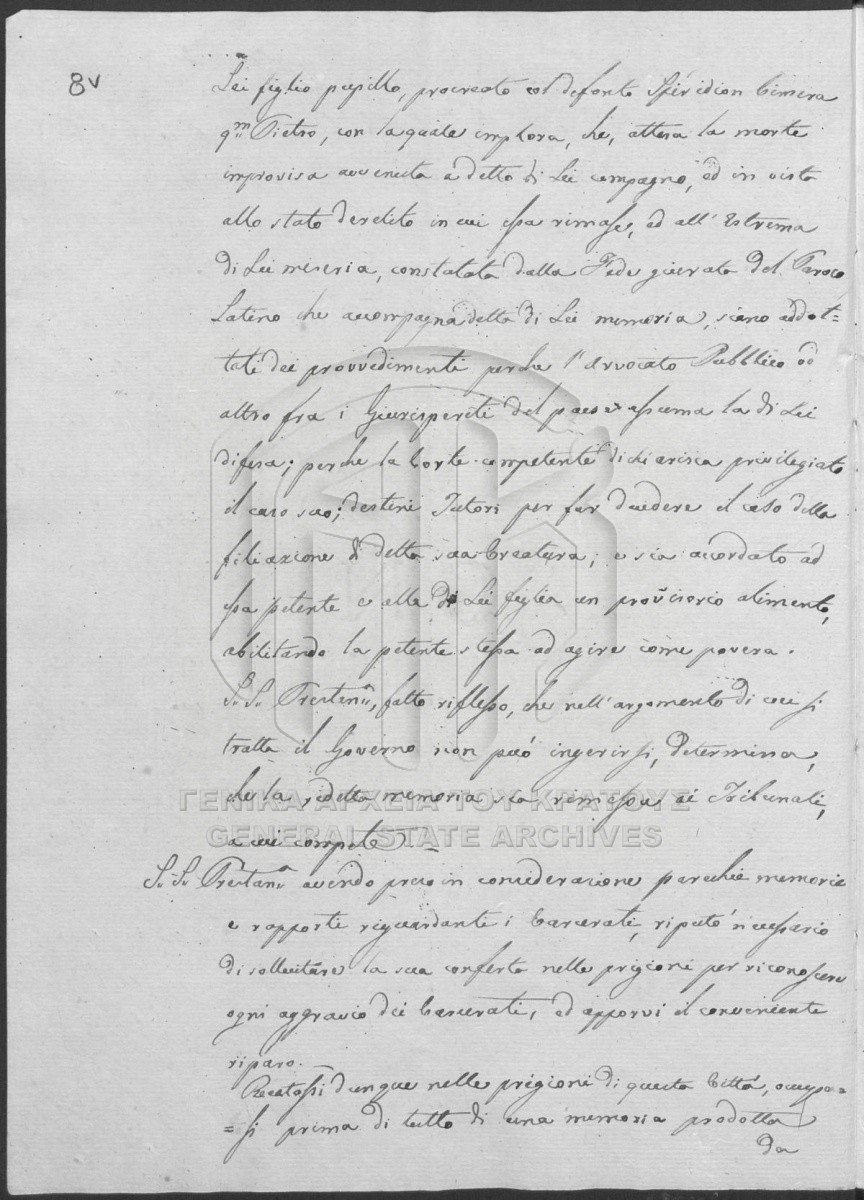 8v
Lei figlio pupillo, procreato col defonto Spiridion Cimera
qm Pietro, con la quale implora, che, attesa la morte
improvisa avvenuta a detto di Lei compagno, ed in vista
allo stato derelito in cui essa rimase, ed all'Estrema
di Lei miseria, constatata dalla Fede giurata del Paroco
Latino che accompagna detta di Lei memoria, siano addot=
tati dei provvedimenti perche l'Avvocato Pubblico od
altro fra i Giurisperiti del paese assuma la di Lei
difesa; perche la Corte competente dichiarisca privilegiato
il caso suo; destini Tutori per far decidere il caso della
filiazione di detta sua Creatura; e sia accordato ad
essa petente e alla di Lei figlia un provisorio alimento,
abilitando la petente stessa ad agire come povera.
S. S. Prestan, fatto riflesso, che nell'argomento di cui si
tratta il Governo non può ingerirsi, determina,
che la sudetta memoria sia rimessa ai Tribunali,
a cui compete. —
ΓΕΝΙΚΑ ΑΡΧΕΙΑ ΤΟΥ ΚΡΑΤΟΥΣ
GENERAL STATE ARCHIVES
S. S. Prestan avendo preso in considerazione parecchie memorie
e rapporti riguardanti i Carcerati, riputò necessario
di sollecitare la sua conferta nelle prigioni per riconoscere
ogni aggravio dei Carcerati, ed apporvi il conveniente
riparo. —
Recatossi dunque nelle prigioni di questa Città, occupo=
=si prima di tutto di una memoria prodotta
da